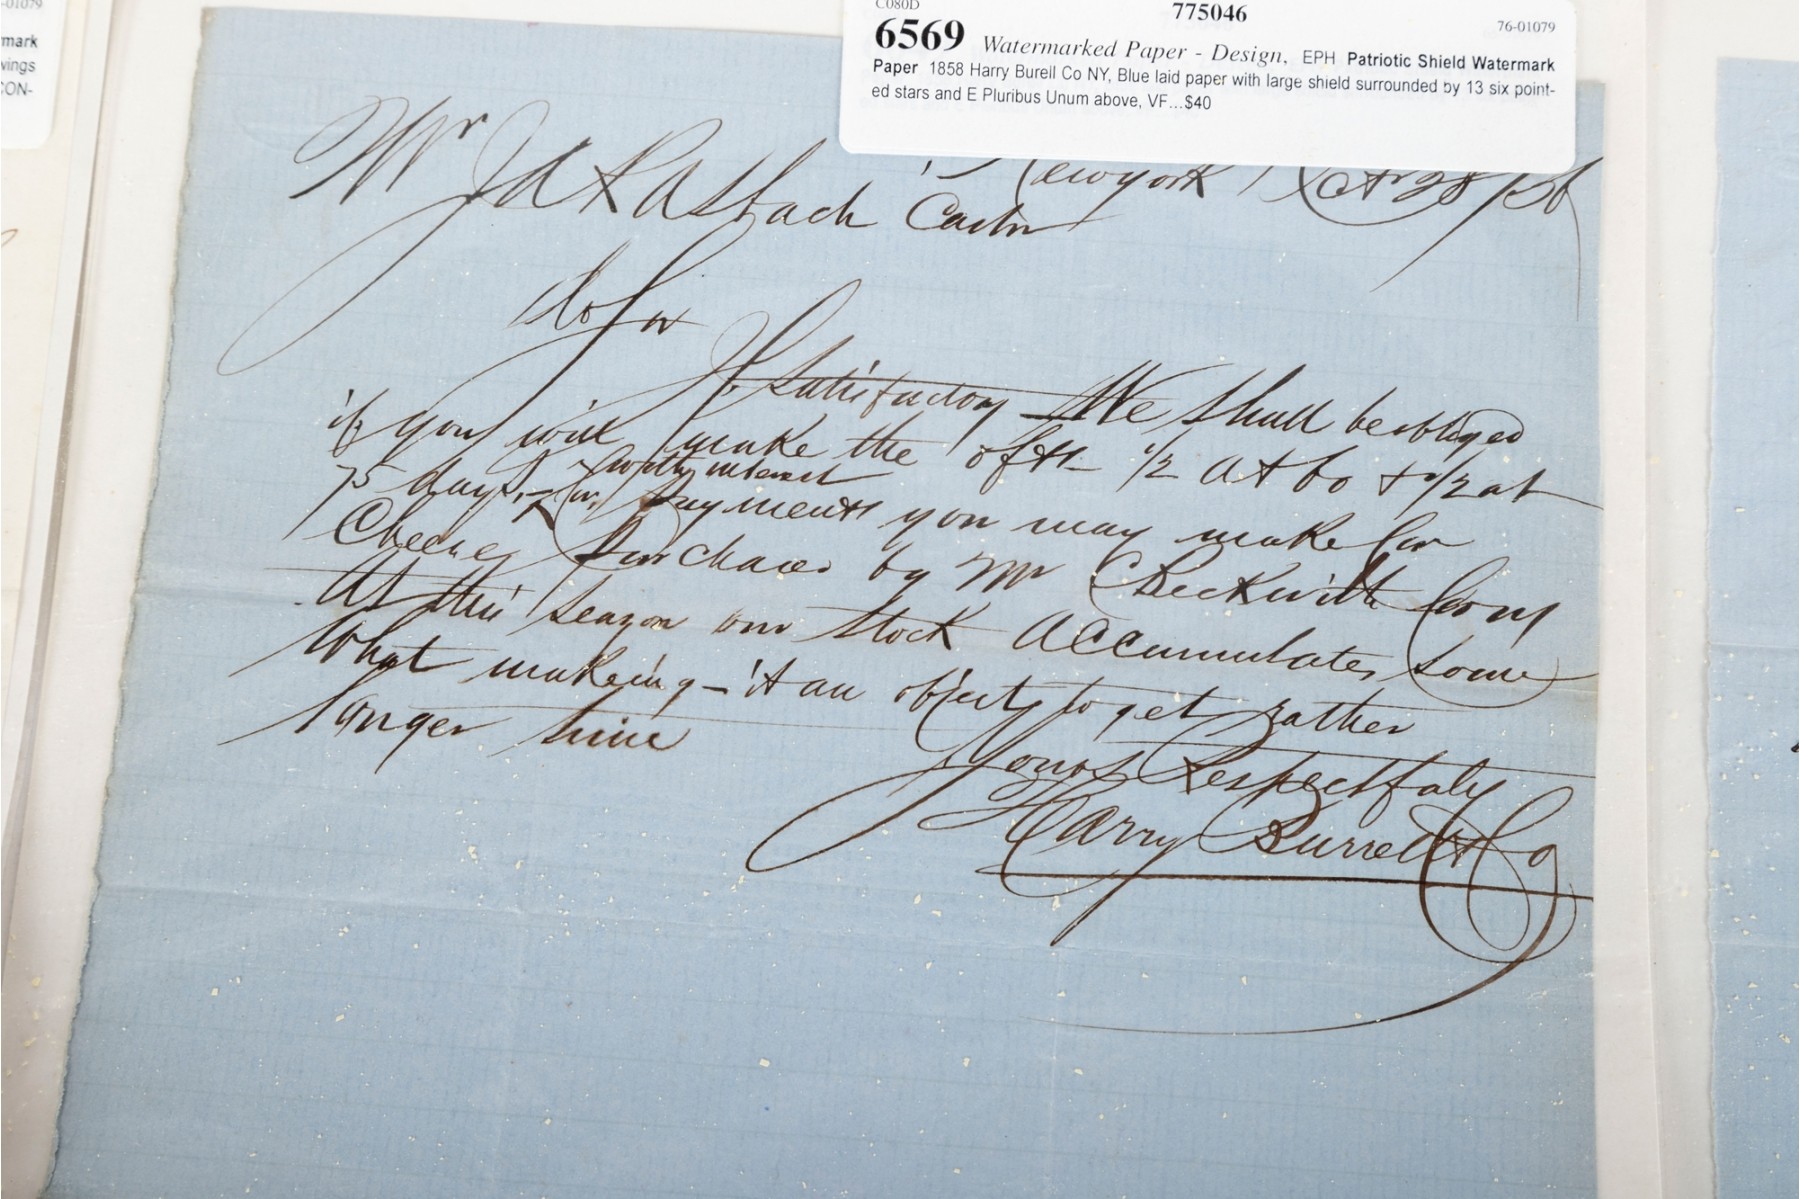 -01079
mark
wings
CON-
C080D
775046
76-01079
6569 Watermarked Paper - Design, EPH Patriotic Shield Watermark
Paper 1858 Harry Burell Co NY, Blue laid paper with large shield surrounded by 13 six point-
ed stars and E Pluribus Unum above, VF...$40
Newyork Octr 28/58
Mr J A Rasbach Cashr
Dr Sir
If satisfactory We shall be obliged
if you will make the dfts 1/2 at 60 & 1/2 at
75 days, with interest for payments you may make for
Cheese Purchases by Mr Beckwith from
At this season our stock accumulates some
what makeing - it an object to get rather
longer time
Yours Respectfuly
Harry Burrell & Co